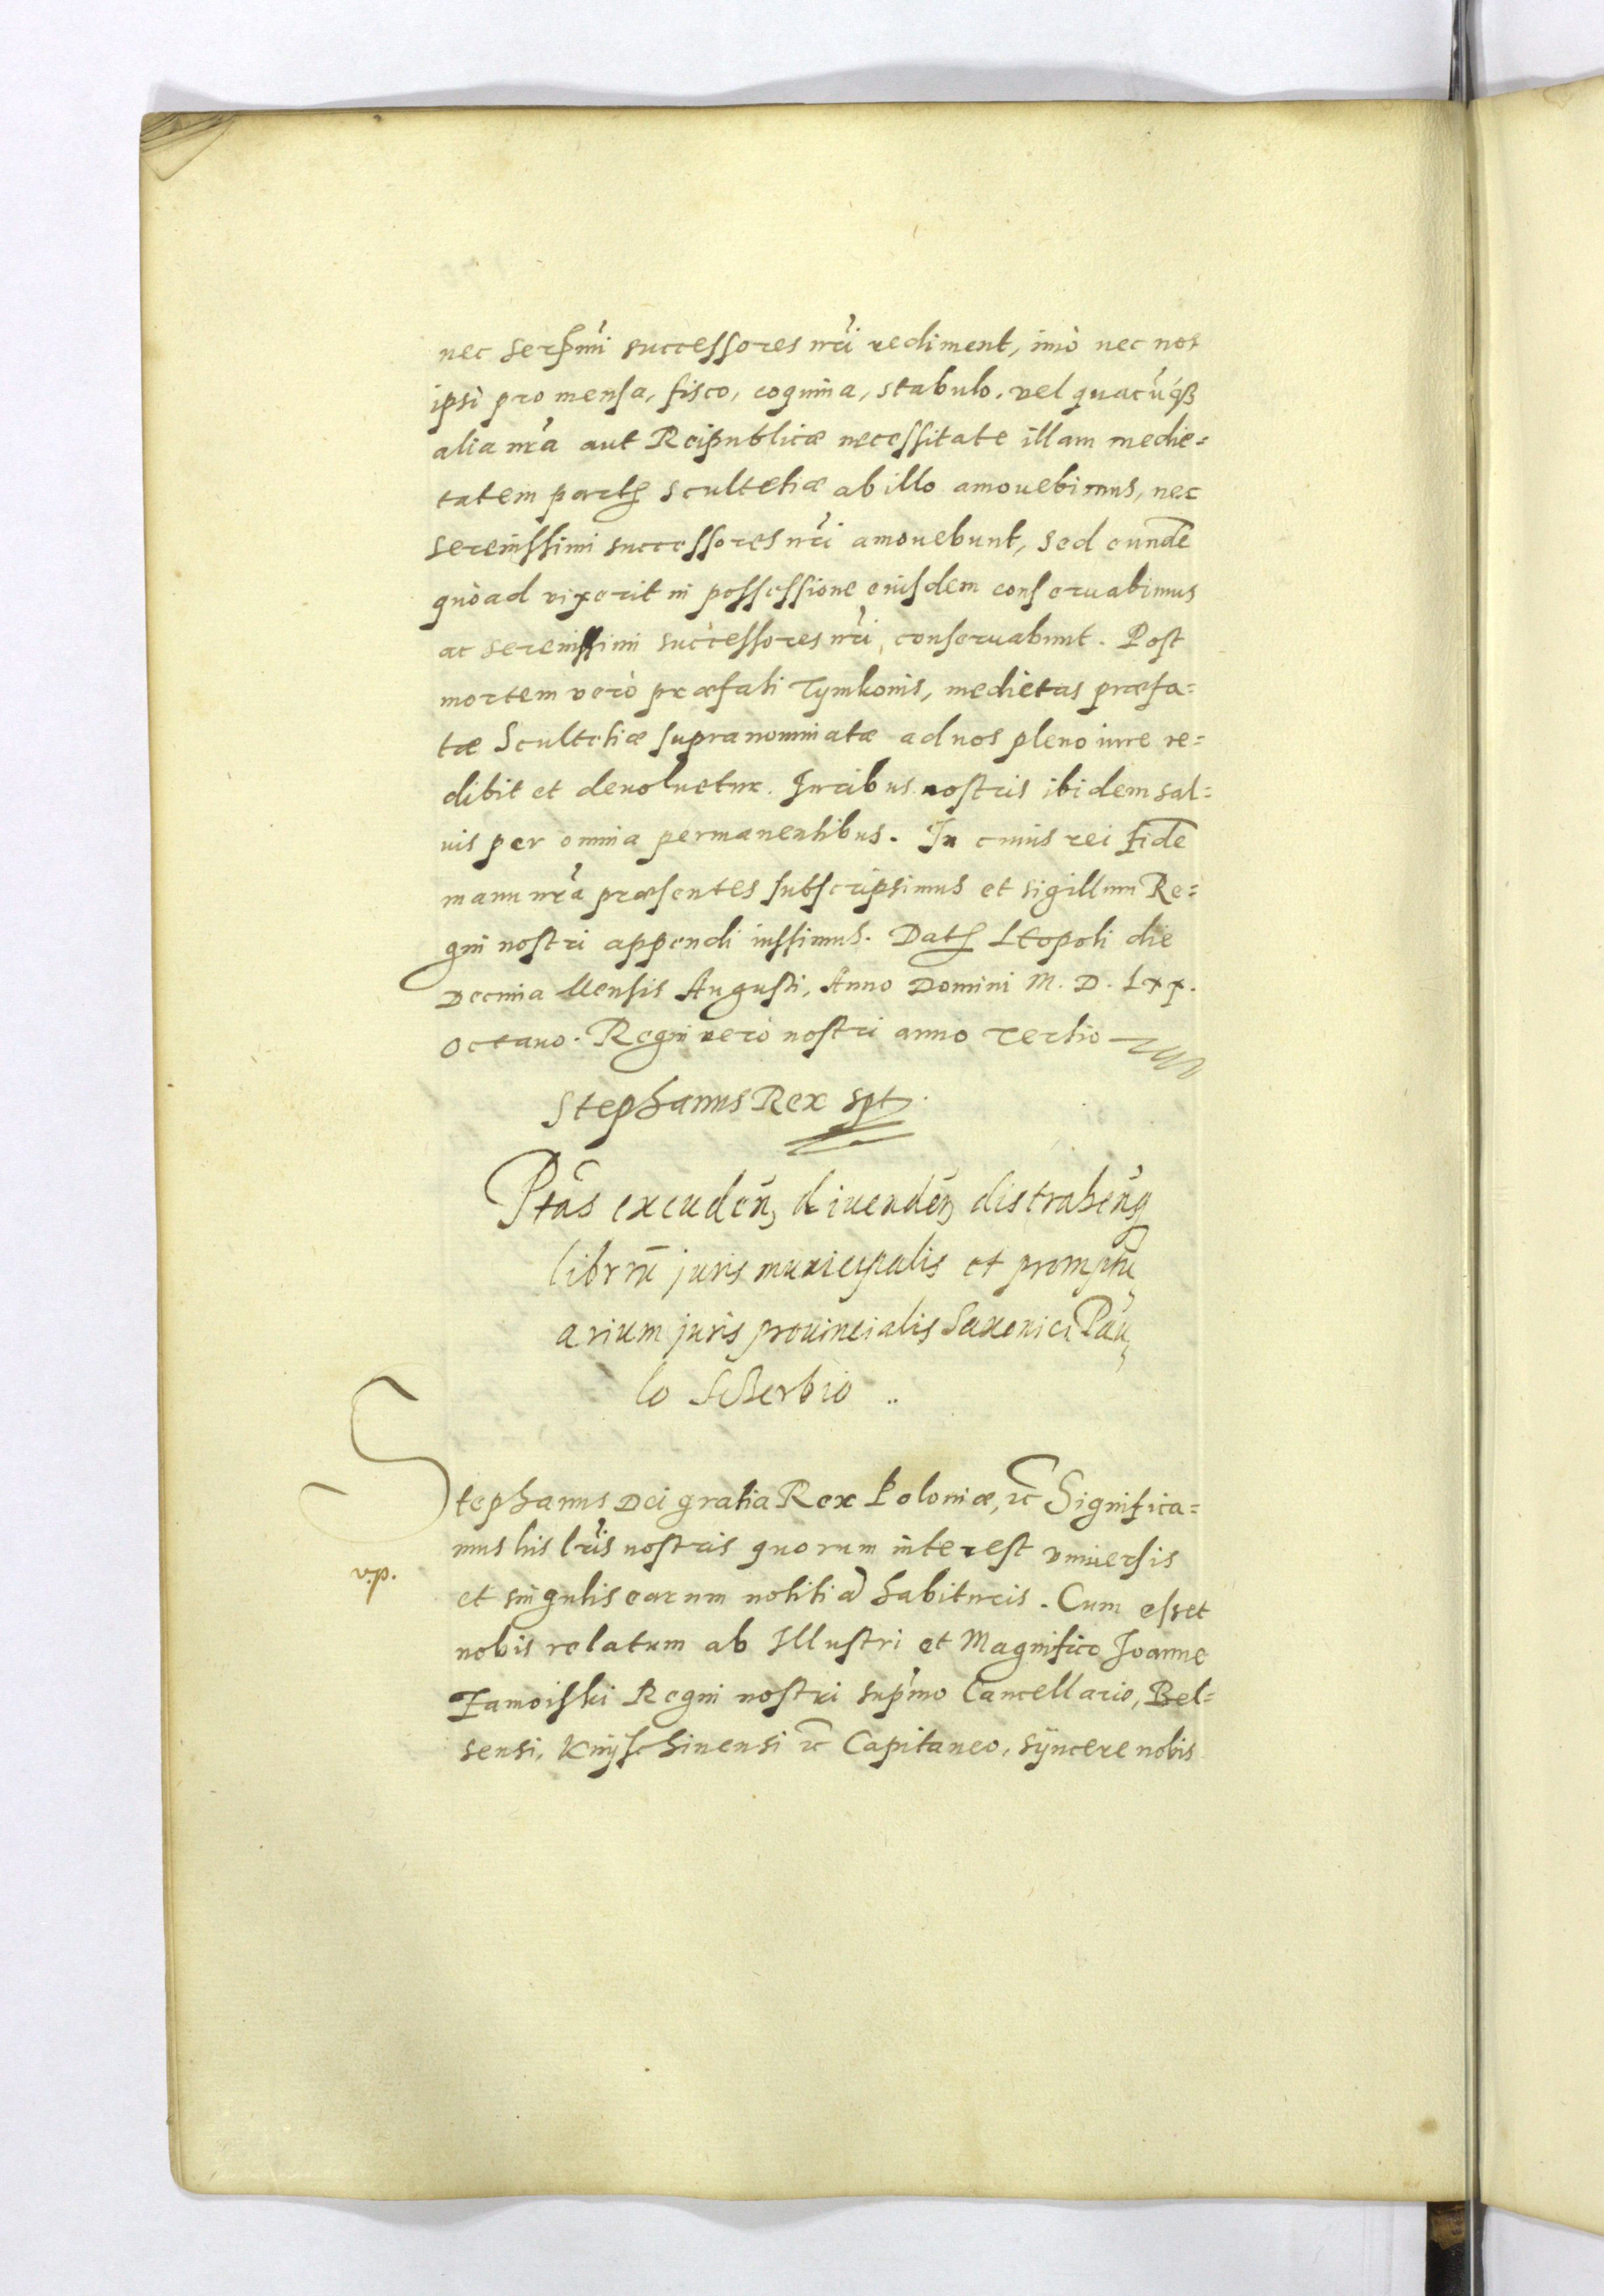 nec serſsmi succeſſores nrĩ rediment, imò nec nos
ipsi pro menſa, fisco, coquina, stabulo, vel quacũqß
alia nrã aut Reipublicæ neceſſitate illam medie=
tatem partis Scultetiæ ab illo amouebimus, nec
sereniſſimi succeſſores nrĩ amouebunt, sed eundē
quòad vixerit in poſſeſſione eiuſdem conſeruabimus
ac sereniſſimi succeſſores nrĩ, conſeruabunt. Poſt
mortem verò præfati Tymkonis, medietas præfa=
tæ Scultetiæ ſupranominatæ ad nos pleno iure re=
dibit et deuoluetur. Iuribus noſtris ibidem sal=
uis per omnia permanentibus. In cuius rei fidē
manu nrã præſentes ſubſcripsimus et sigillum Re=
gni noſtri appendi iuſſimus. Dat Leopoli die
Decima Menſis Auguſti, Anno Domini M. D. Lxx.
octauo. Regni verò noſtri anno Tertio
Stephanus Rex spt.
Ptãs excudeñ, diuendeñ, distraheñq
librũ juris municipalis et promptu„
arium juris prouincialis Saxonici Pau„
lo Sczerbio ..
Stephanus Dei gratia Rex Poloniæ, ꝛc̄ Significa=
mus his lrĩs nostris quorum intereſt vniuerſis
et singulis earum notitiã habituris. Cum eſſet
nobis relatum ab Illuſtri et Magnifico Joanne
Zamoiſki Regni noſtri supmo Cancellario, Bel=
v.p.
sensi, Knyſchinensi ꝛc̄ Capitaneo, sÿncere nobis